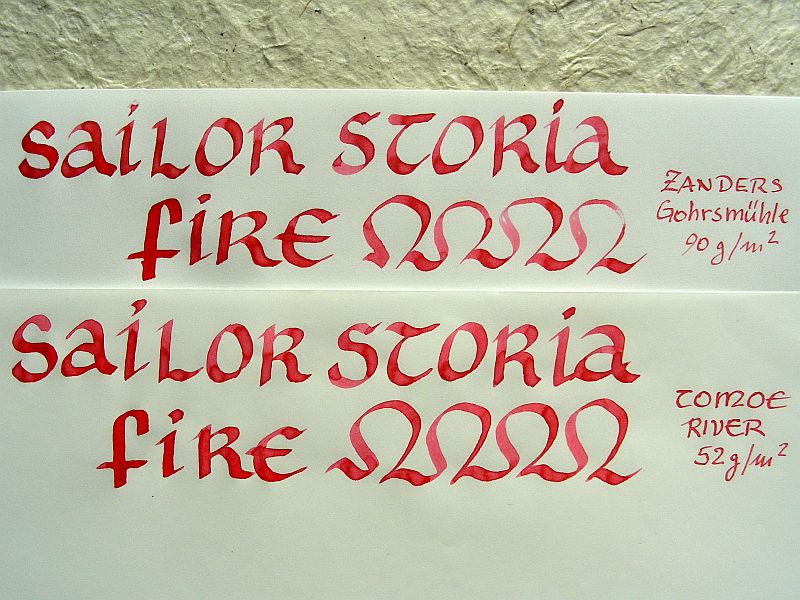 Sailor Storia
fire
Zanders
Gohrsmühle
90 g/m²
Sailor Storia
fire
Tomoe
River
52 g/m²